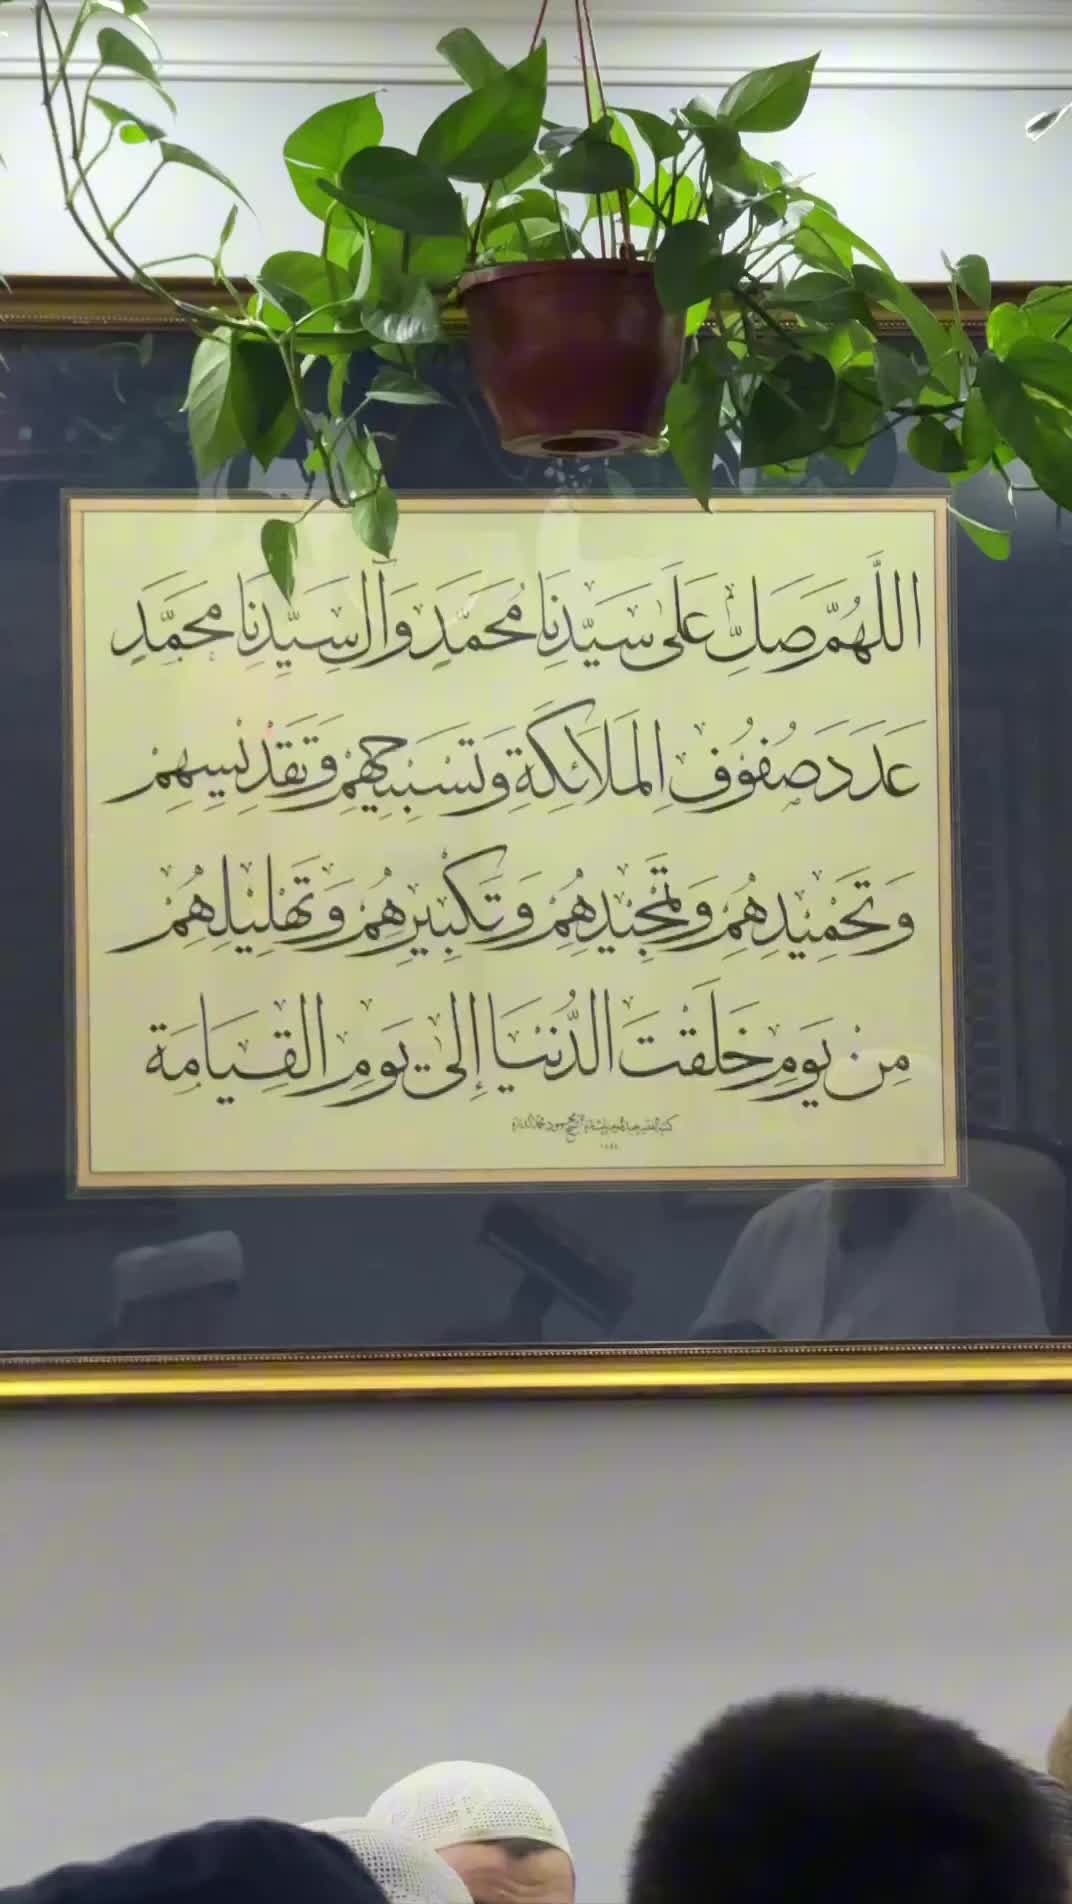 اللَّهُمَّ صَلِّ عَلَى سَيِّدِنَا مُحَمَّدٍ وَآلِ سَيِّدِنَا مُحَمَّدٍ
عَدَدَ صُفُوفِ المَلَائِكَةِ وَتَسْبِيحِهِمْ وَتَقْدِيسِهِمْ
وَتَحْمِيدِهِمْ وَتَمْجِيدِهِمْ وَتَكْبِيرِهِمْ وَتَهْلِيلِهِمْ
مِنْ يَوْمِ خَلَقْتَ الدُّنْيَا إِلَى يَوْمِ القِيَامَة